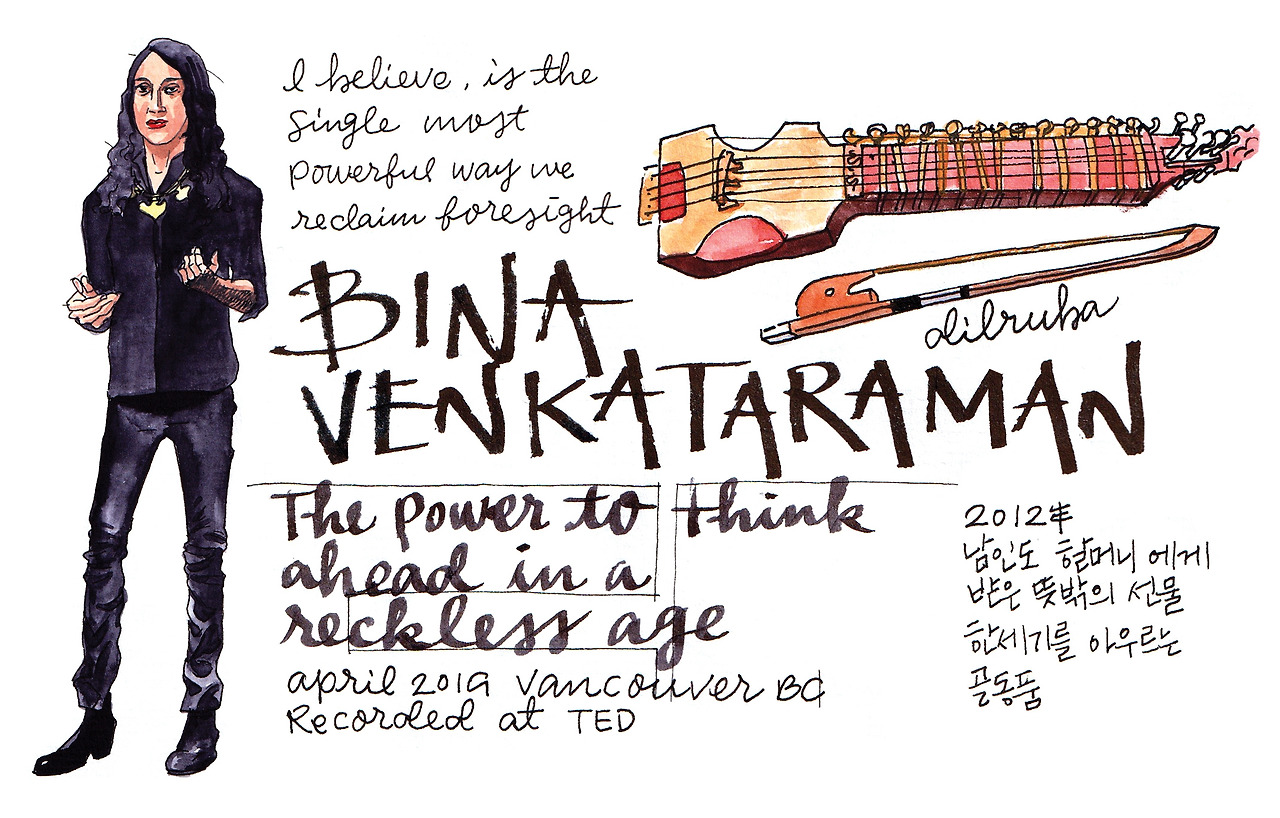 I believe, is the
single most
powerful way we
reclaim foresight
BINA
VENKATARAMAN
dilruba
The power to think
ahead in a
reckless age
april 2019 Vancouver BC
Recorded at TED
2012年
남인도 할머니 에게
받은 뜻밖의 선물
한세기를 아우르는
골동품